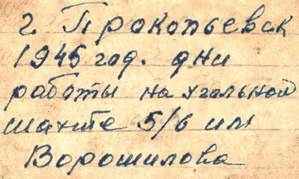 г. Прокопьевск
1945 год. дни
работы на угальной
шахте 5/6 им
Ворошилова